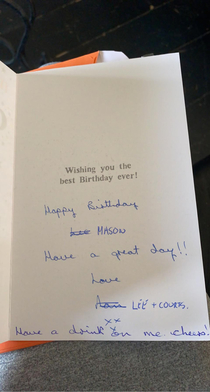 Wishing you the
best Birthday ever!
Happy Birthday
Lee MASON
Have a great day!!
Love
LEE + COURTS.
xx
Have a drink on me cheers!